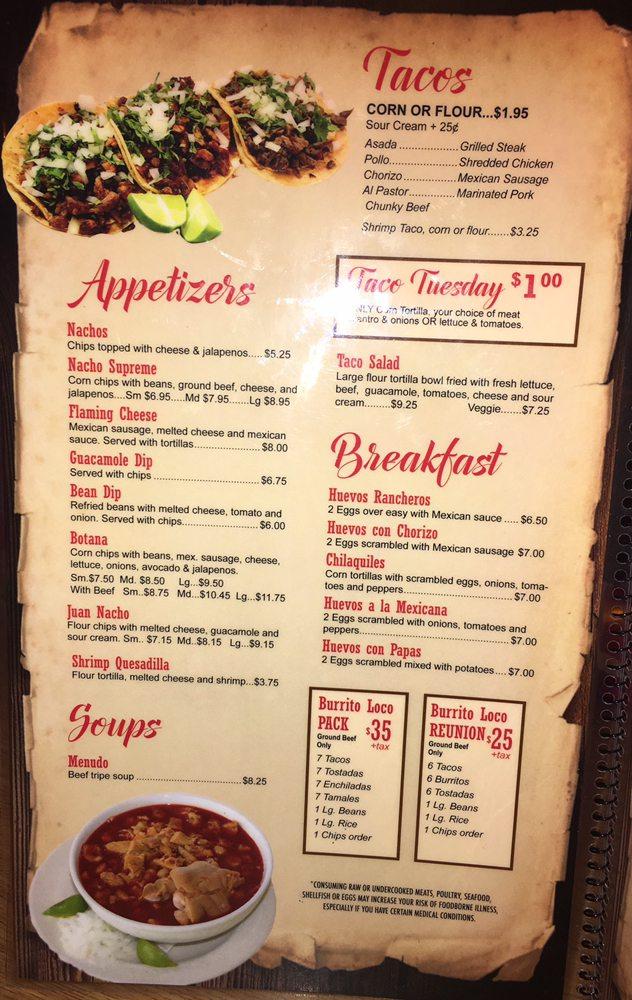 Tacos
CORN OR FLOUR...$1.95
Sour Cream + 25¢
Asada ................Grilled Steak
Pollo..................Shredded Chicken
Chorizo ...............Mexican Sausage
Al Pastor..............Marinated Pork
Chunky Beef
Shrimp Taco, corn or flour.......$3.25
Taco Tuesday $1 00
Corn Tortilla, your choice of meat
& onions OR lettuce & tomatoes.
Appetizers
Nachos
Chips topped with cheese & jalapenos..... $5.25
Nacho Supreme
Corn chips with beans, ground beef, cheese, and
jalapenos....Sm $6.95.....Md $7.95.......Lg $8.95
Flaming Cheese
Mexican sausage, melted cheese and mexican
sauce. Served with tortillas.................... $8.00
Guacamole Dip
Served with chips ................................ $6.75
Bean Dip
Refried beans with melted cheese, tomato and
onion. Served with chips....................... $6.00
Botana
Corn chips with beans, mex. sausage, cheese,
lettuce, onions, avocado & jalapenos.
Sm.$7.50 Md. $8.50 Lg...$9.50
With Beef Sm..$8.75 Md...$10.45 Lg...$11.75
Juan Nacho
Flour chips with melted cheese, guacamole and
sour cream. Sm.. $7.15 Md..$8.15 Lg...$9.15
Shrimp Quesadilla
Flour tortilla, melted cheese and shrimp...$3.75
Soups
Menudo
Beef tripe soup ................................$8.25
Taco Salad
Large flour tortilla bowl fried with fresh lettuce,
beef, guacamole, tomatoes, cheese and sour
cream.........$9.25 Veggie.......$7.25
Breakfast
Huevos Rancheros
2 Eggs over easy with Mexican sauce ..... $6.50
Huevos con Chorizo
2 Eggs scrambled with Mexican sausage $7.00
Chilaquiles
Corn tortillas with scrambled eggs, onions, toma-
toes and peppers.................................$7.00
Huevos a la Mexicana
2 Eggs scrambled with onions, tomatoes and
peppers............................................. $7.00
Huevos con Papas
2 Eggs scrambled mixed with potatoes.... $7.00
Burrito Loco
PACK $35
Ground Beef
Only +tax
7 Tacos
7 Tostadas
7 Enchiladas
7 Tamales
1 Lg. Beans
1 Lg. Rice
1 Chips order
Burrito Loco
REUNION $25
Ground Beef
Only +tax
6 Tacos
6 Burritos
6 Tostadas
1 Lg. Beans
1 Lg. Rice
1 Chips order
*CONSUMING RAW OR UNDERCOOKED MEATS, POULTRY, SEAFOOD,
SHELLFISH OR EGGS MAY INCREASE YOUR RISK OF FOODBORNE ILLNESS,
ESPECIALLY IF YOU HAVE CERTAIN MEDICAL CONDITIONS.